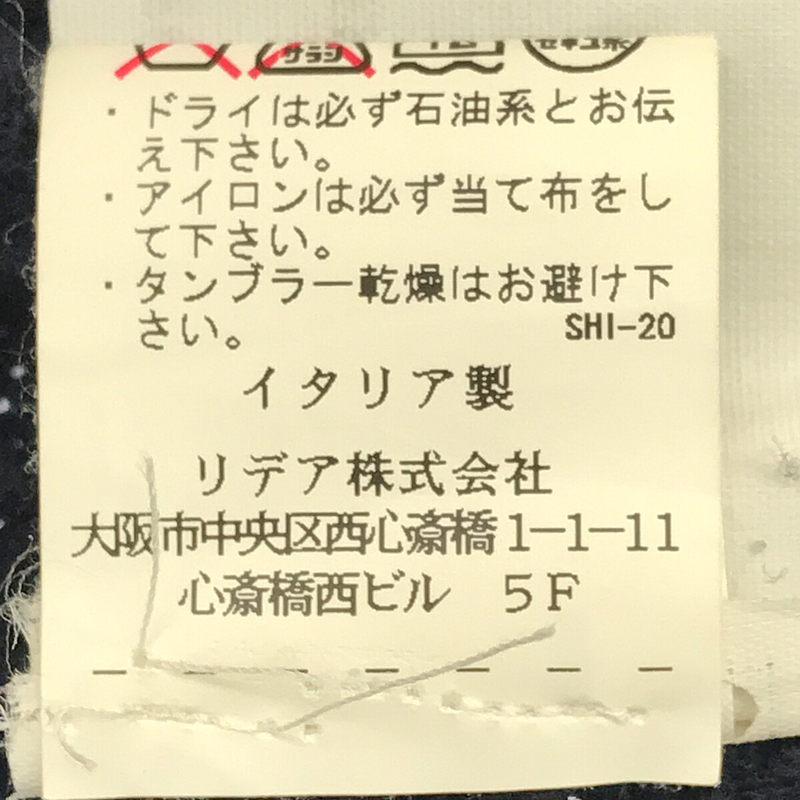 サラシ
セキユ系
・ドライは必ず石油系とお伝
え下さい。
・アイロンは必ず当て布をし
て下さい。
・タンブラー乾燥はお避け下
さい。 SHI-20
イタリア製
リデア株式会社
大阪市中央区西心斎橋1-1-11
心斎橋西ビル 5F